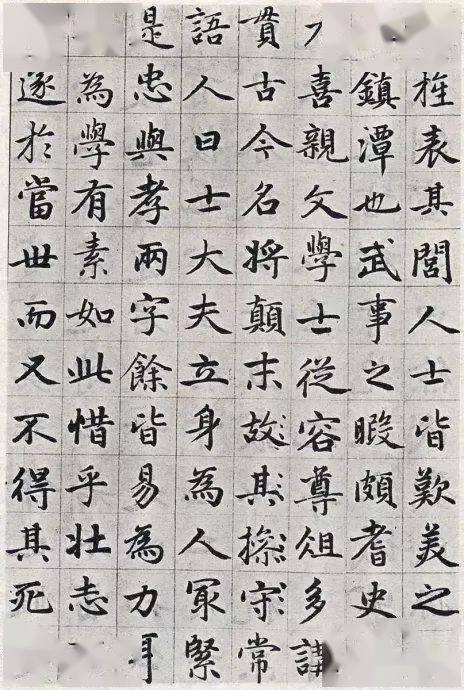 旌表其閭人士皆歎美之
鎮潭也武事之暇頗耆史
喜親文學士從容尊俎多講
貫古今名將顛末故其操守常
語人曰士大夫立身為人冣緊
是忠與孝兩字餘皆易為力耳
為學有素如此惜乎壯志
遂於當世而又不得其死